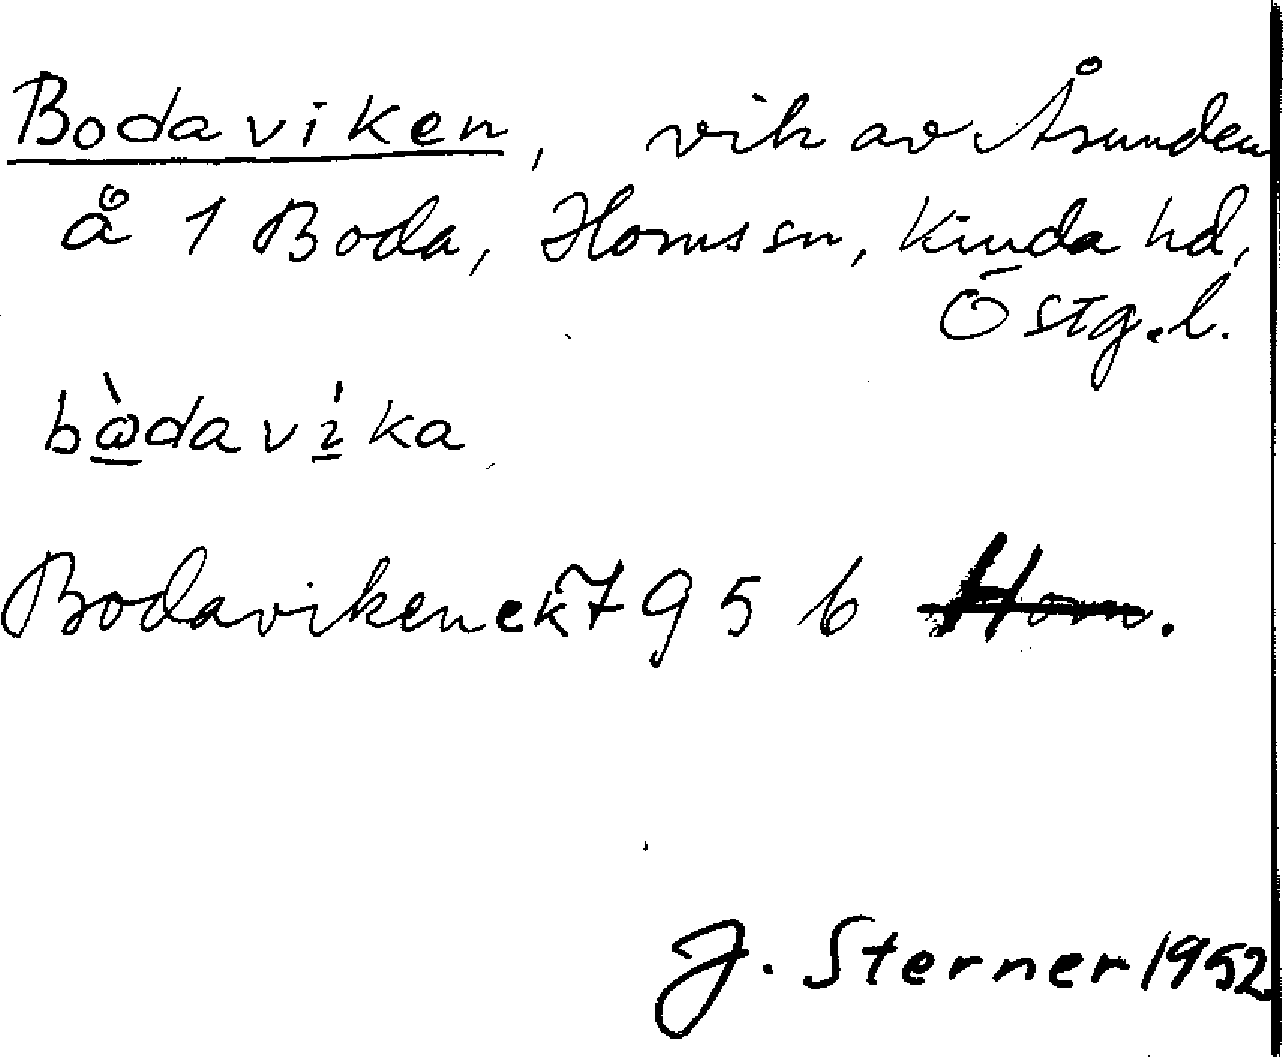 Bodaviken, vik av Åsunden
å 1 Boda, Horns sn, Kinda hd,
Östg.l.
bὰdavìka
Bodaviken ek 7 9 5 6 Horn.
J. Sterner 1952